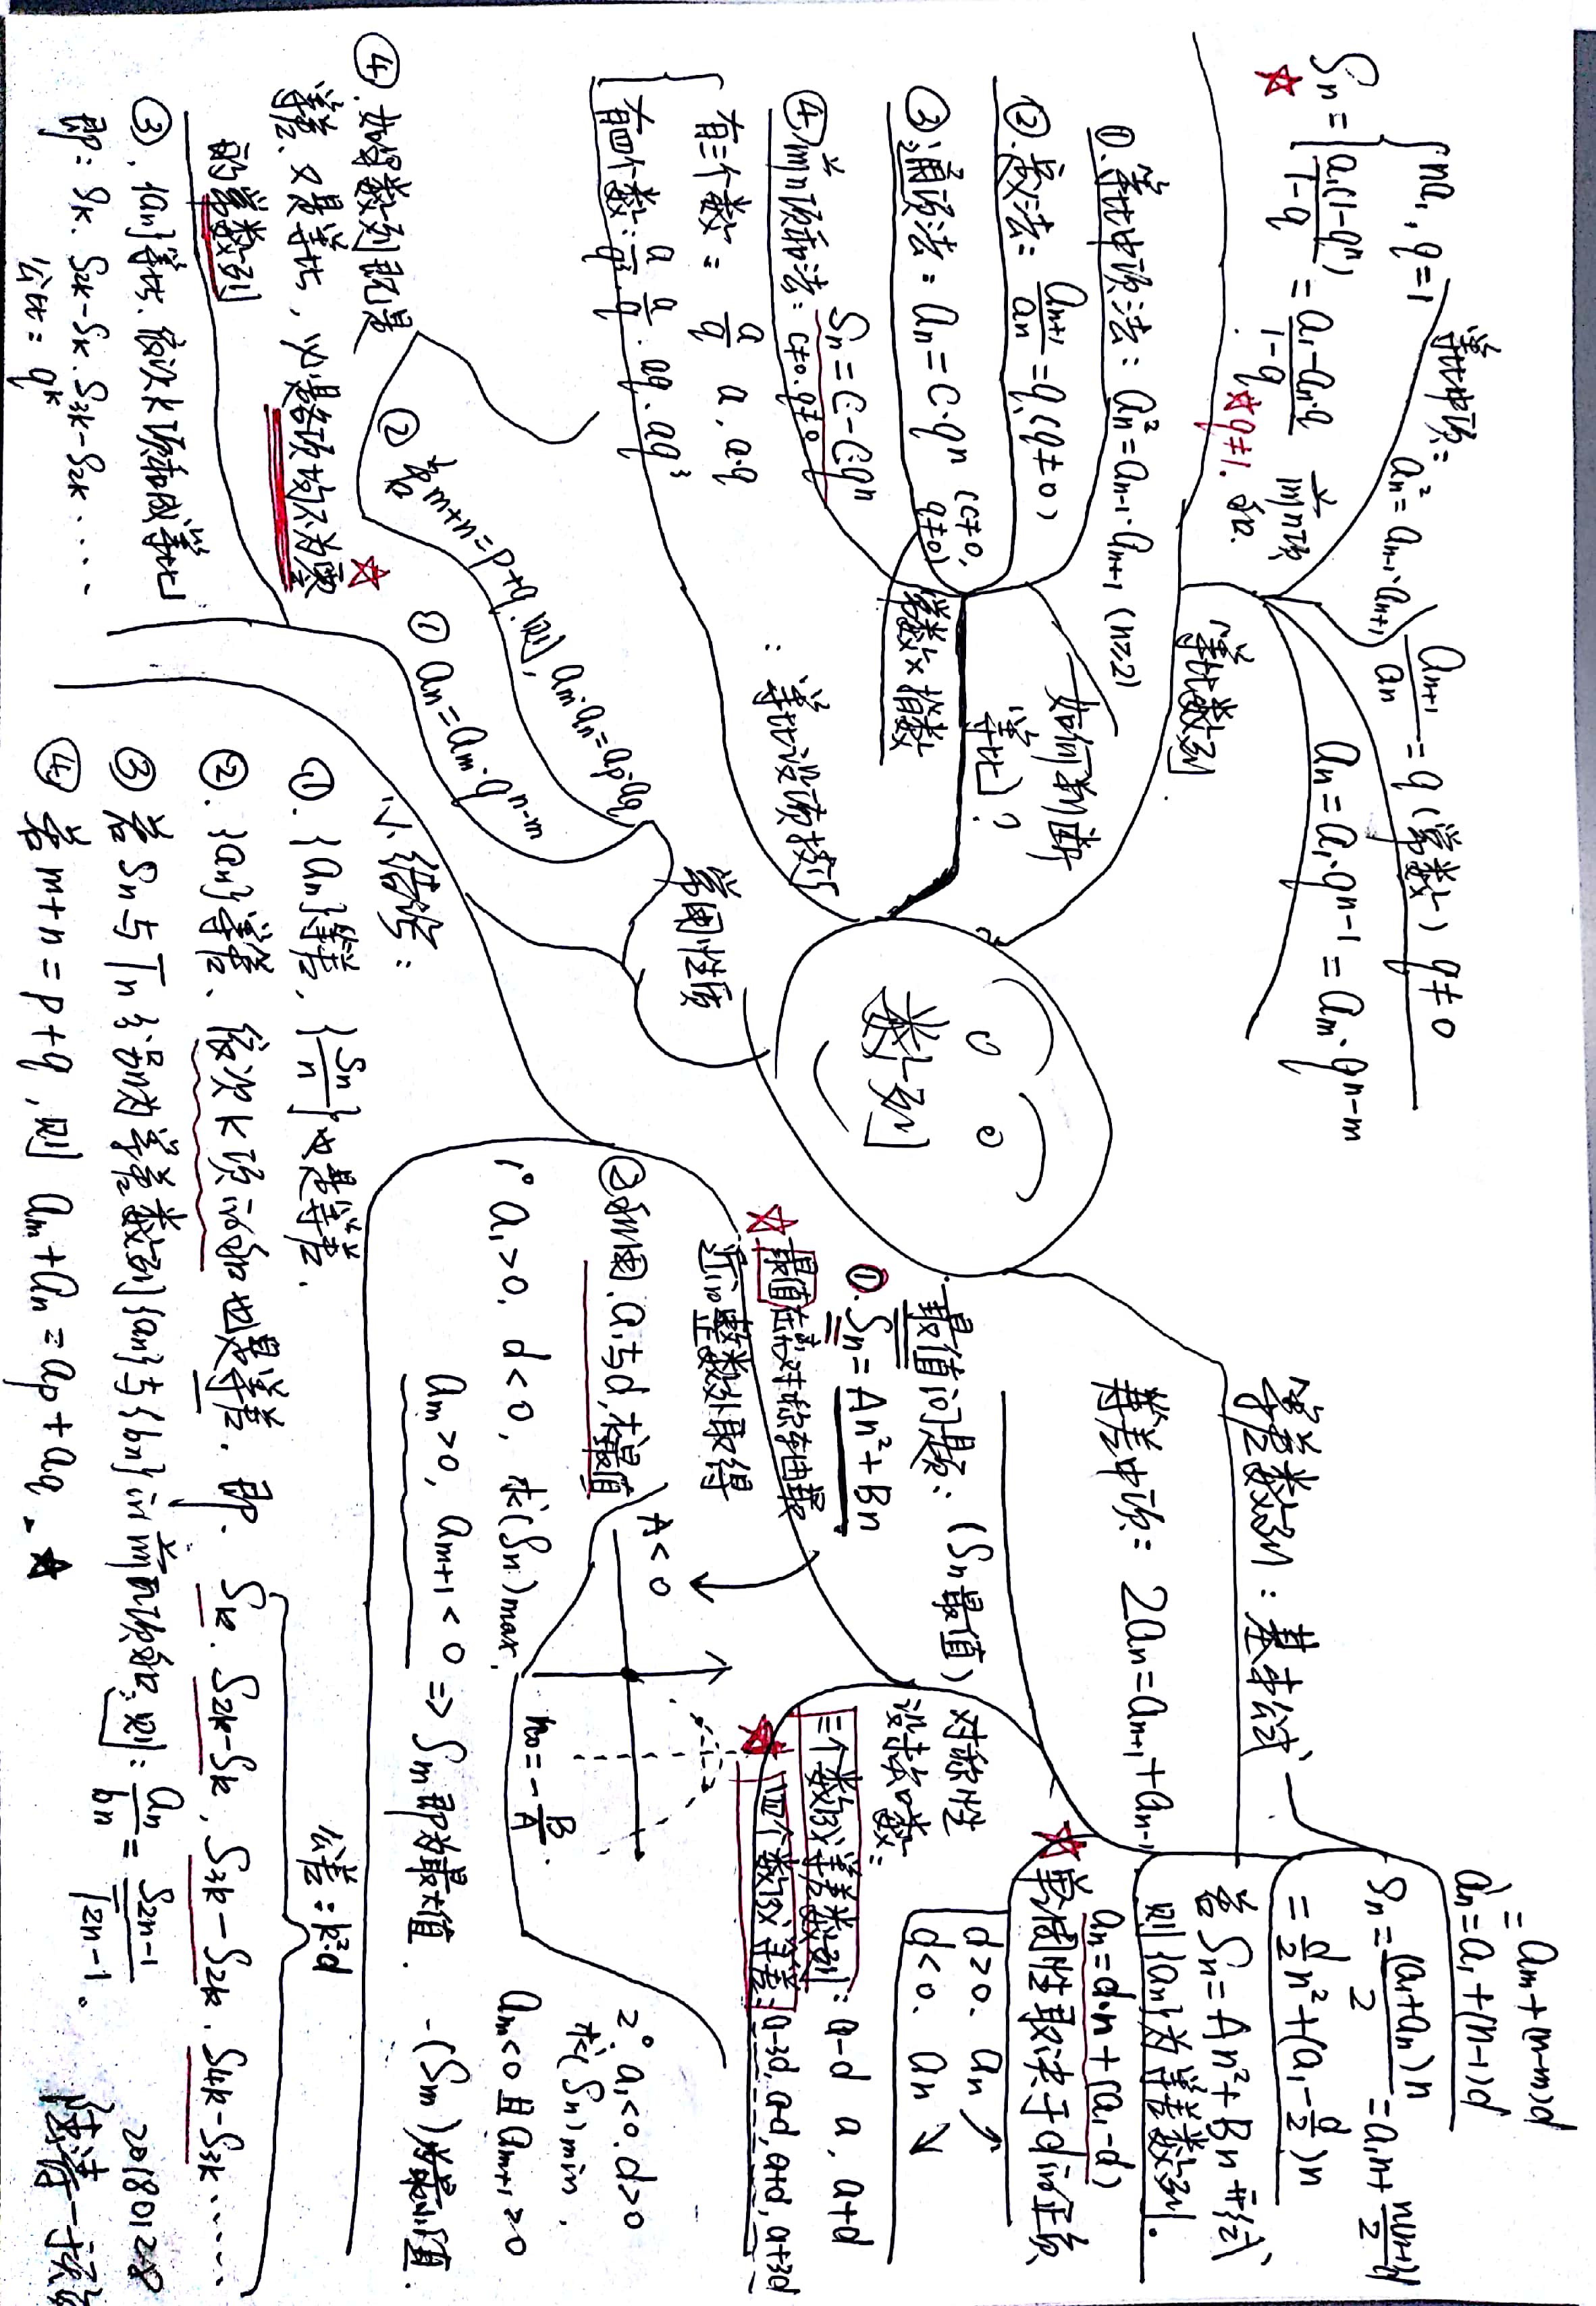 数列
等比数列
a_{n+1}/a_n = q (常数) q≠0
a_n = a_1·q^{n-1} = a_m·q^{n-m}
等比中项: a_n² = a_{n-1}·a_{n+1}
S_n = { na_1, q=1
a_1(1-q^n)/(1-q) = (a_1-a_n·q)/(1-q) ☆q≠1. 前n项和.
☆
如何判断
等比?
①.等比中项法: a_n² = a_{n-1}·a_{n+1} (n≥2)
②.定义法: a_{n+1}/a_n = q (q≠0)
③通项法: a_n = c·q^n (c≠0, q≠0)
常数×指数
④.前n项和法: S_n = C-C·q^n
c≠0. q≠0
等比设项技巧:
有三个数: a/q a, a·q
有四个数: a/q³. a/q. aq. aq³
常用性质
① a_n = a_m·q^{n-m}
②若m+n=p+q, 则, a_m·a_n=a_p·a_q
③. {a_n}等比. 依次k项和成等比
即: S_k. S_{2k}-S_k. S_{3k}-S_{2k}....
公比: q^k
④.如增数列既是
等差. 又是等比, 必是各项均不为零 ☆
的常数列
等差数列: 基本公式
a_n = a_1+(n-1)d
= a_m+(n-m)d
S_n = (a_1+a_n)n/2 = a_1n+n(n-1)d/2
= d/2 n²+(a_1-d/2)n
若S_n=An²+Bn 形式
则{a_n}为等差数列.
等差中项: 2a_n=a_{n+1}+a_{n-1}
☆单调性取决于d的正负
a_n=d·n+(a_1-d)
d>0. a_n↗
d<0. a_n↘
对称性
设未知数:
三个数成等差数列: a-d a, a+d
☆ 四个数成等差: a-3d, a-d, a+d, a+3d
最值问题: (S_n最值)
①.S_n=An²+Bn
☆最值在对称轴最
近的正整数处取得
A<0
n_0=-B/A.
②利用a_1与d,求最值
1° a_1>0, d<0, 求(S_n)max.
a_m>0, a_{m+1}<0 ⇒ S_m即为最大值.
2° a_1<0. d>0
求(S_n)min,
a_m<0且a_{m+1}≥0
-(S_m)为最小值.
小结论:
①. {a_n}等差, {S_n/n}也是等差.
②. {a_n}等差、依次k项的和也是等差. 即. S_k. S_{2k}-S_k, S_{3k}-S_{2k}. S_{4k}-S_{3k}......
公差: k²d
③若S_n与T_n分别为等差数列{a_n}与{b_n}的前n项和. 则: a_n/b_n = S_{2n-1}/T_{2n-1}.
④若m+n=p+q, 则 a_m+a_n=a_p+a_q. ★
20180128